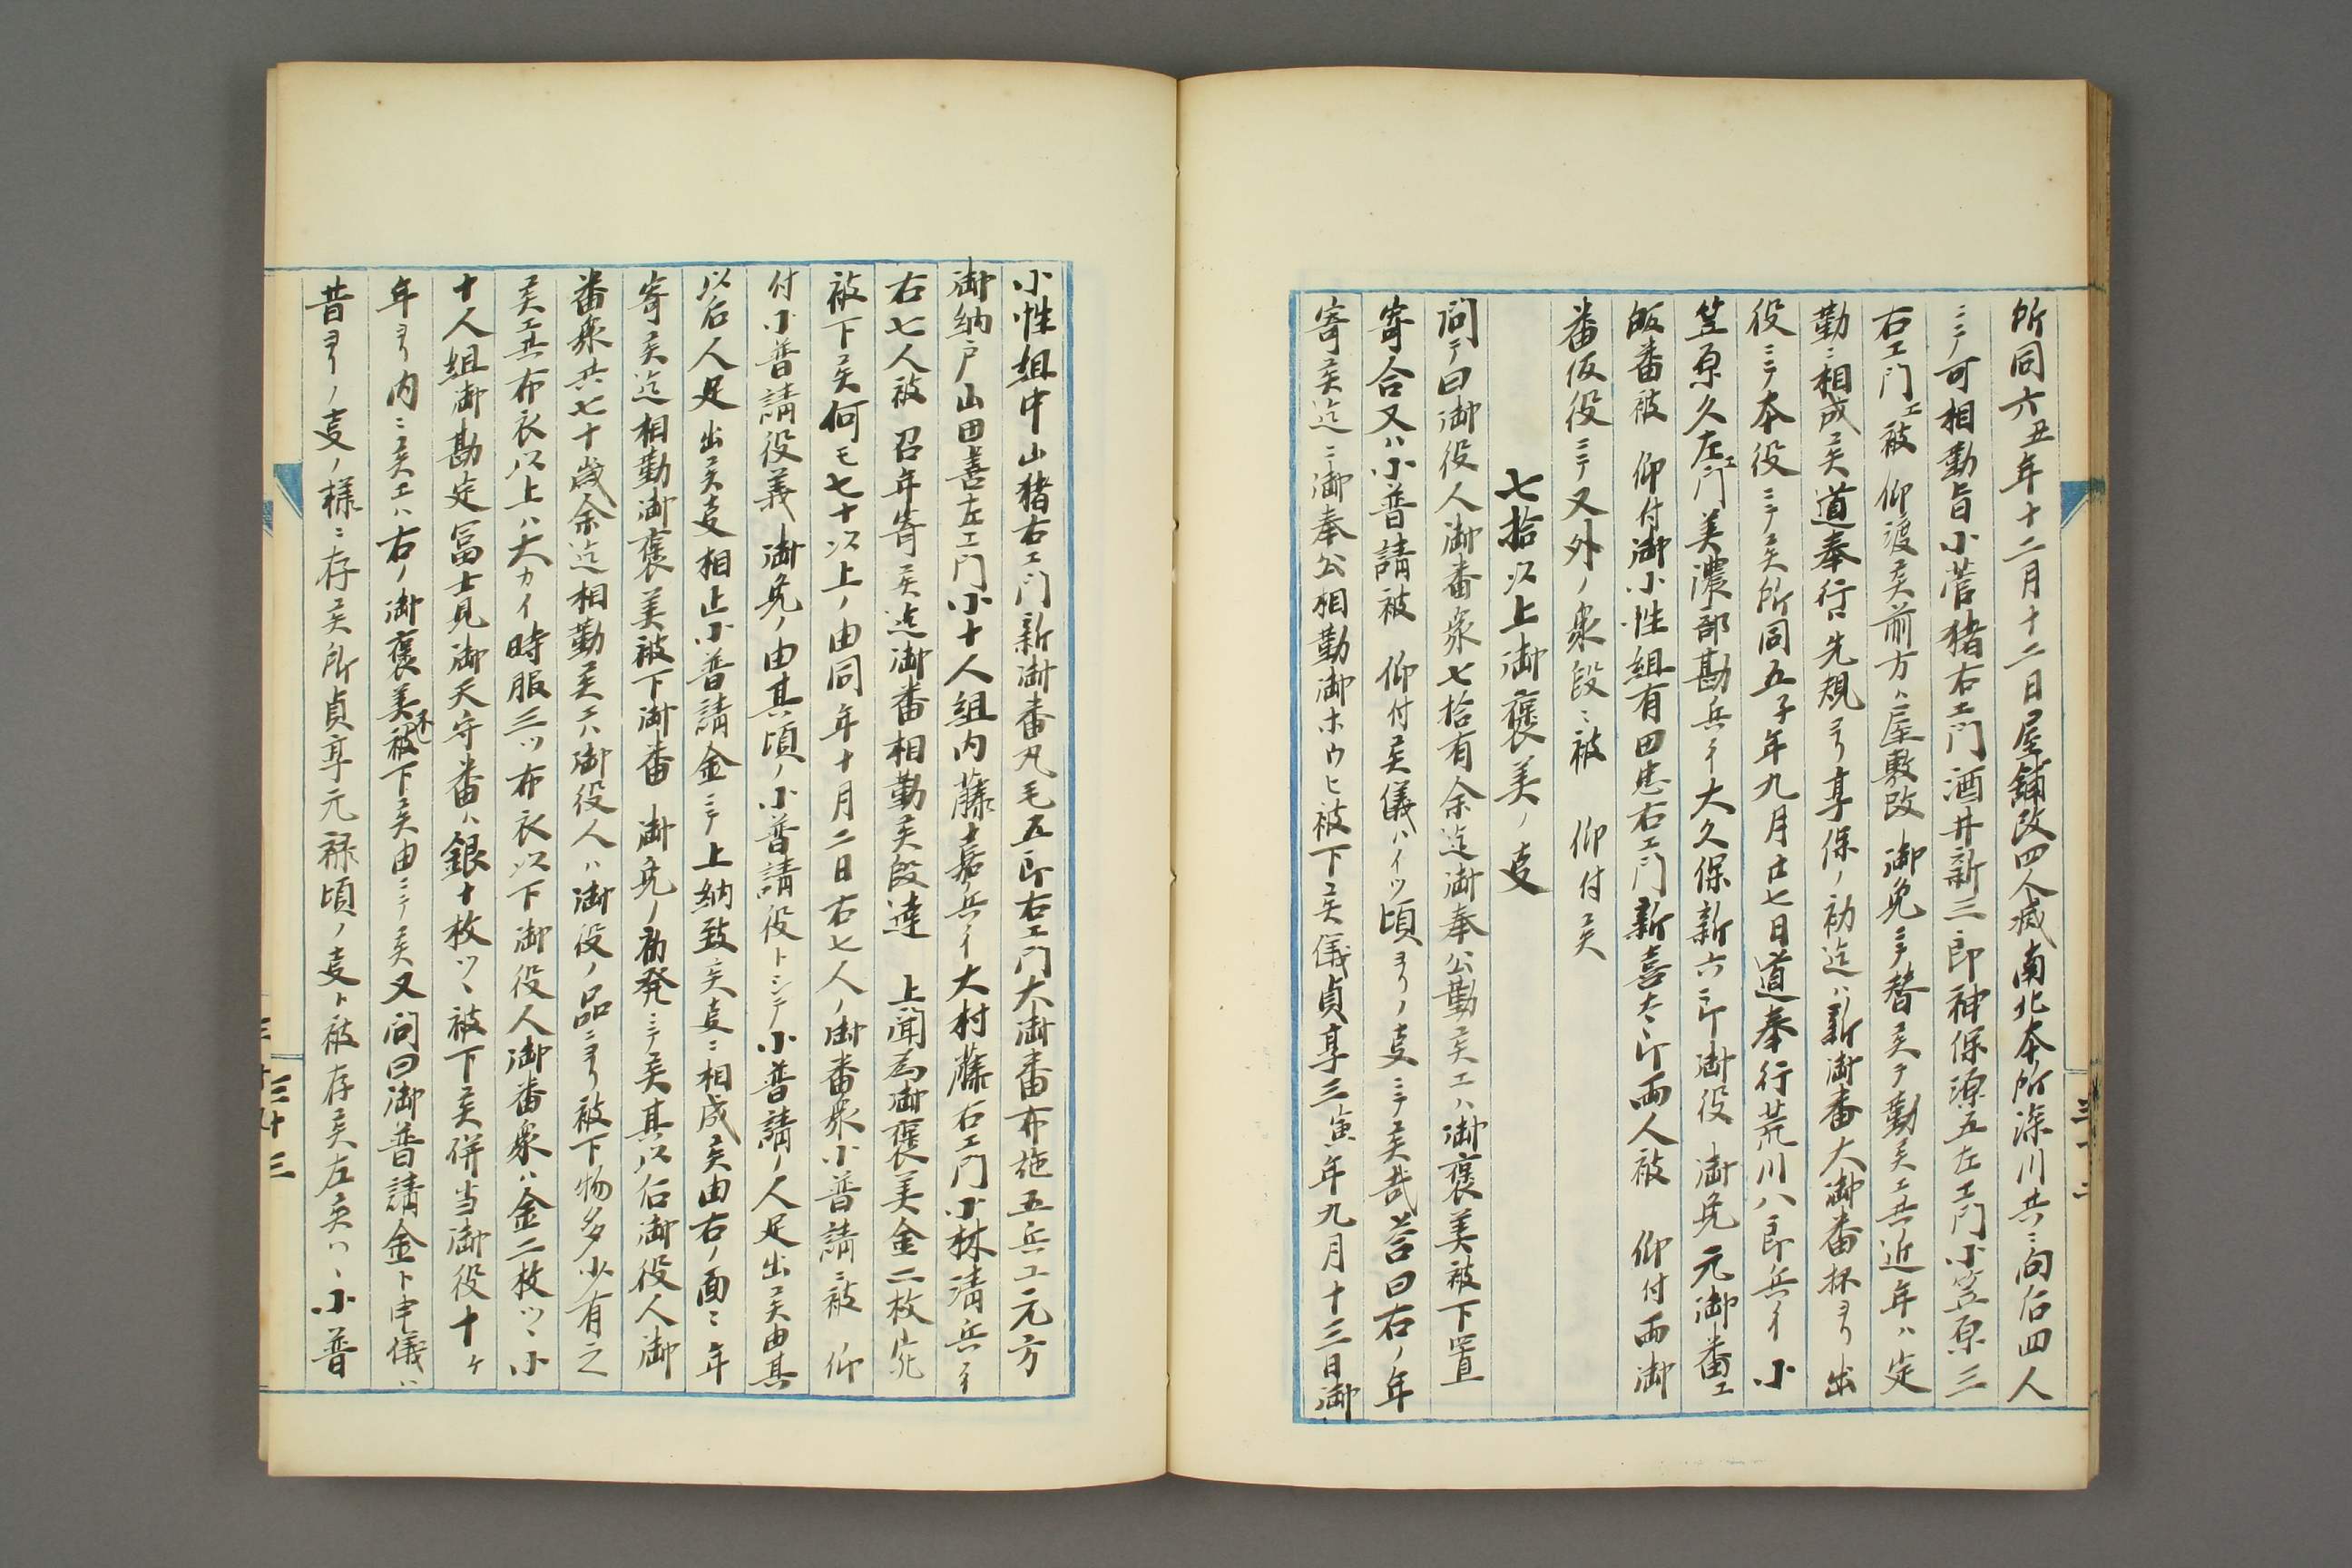 所同六丑年十二月十二日屋舗改四人減南北本所深川共ニ向后四人
ニテ可相勤旨小菅猪右エ門酒井新三郎神保源五左エ門小笠原三
右エ門エ被 仰渡候前方ハ屋敷改 御免ニテ替候テ勤候エ共近年ハ定
勤ニ相成候道奉行ハ先規ヨリ享保ノ初迄ハ新御番大御番杯ヨリ出
役ニテ本役ニテ候所同五子年九月廿七日道奉行荒川八郎兵衛小
笠原久左エ門美濃部勘兵衛大久保新六郎御役 御免元御番エ
皈番被 仰付御小性組有田忠右エ門新喜太郎両人被 仰付両御
番仮役ニテ又外ノ衆段ニ被 仰付候
七拾以上御褒美ノ事
問テ曰御役人御番衆七拾有余迄御奉公勤候エハ御褒美被下置
寄合又ハ小普請被 仰付候儀ハイツ頃ヨリノ事ニテ候哉答曰右ノ年
寄候迄ニ御奉公相勤御ホウヒ被下候儀貞享三寅年九月十三日御
小性組中山猪右エ門新御番凡毛五郎右エ門大御番布施五兵エ元方
御納戸山田善左エ門小十人組内藤嘉兵衛大村藤右エ門小林清兵衛
右七人被 召年寄候迄御番相勤候段達 上聞為御褒美金二枚宛
被下候何モ七十以上ノ由同年十月二日右七人ノ御番衆小普請ニ被 仰
付小普請役義 御免ノ由其頃ノ小普請役トシテ小普請ノ人足出候由其
以后人足出候事相止小普請金ニテ上納致候事ニ相成候由右ノ面ニ年
寄候迄相勤御褒美被下御番 御免ノ初発ニテ候其以后御役人御
番衆共七十歳余迄相勤候エハ御役人ハ御役ノ品ニヨリ被下物多少有之
候エ共布衣以上ハ大カイ時服三ツ布衣以下御役人御番衆ハ金二枚ツヽ小
十人組御勘定富士見御天守番ハ銀十枚ツヽ被下候併当御役十ケ
年ヨリ内ニ候エハ右ノ御褒美不被下候由ニテ候又問曰御普請金ト申儀ハ
昔ヨリノ事ノ様ニ存候所貞享元禄頃ノ事ト被存候左候ハヽ小普
三十二
三十三